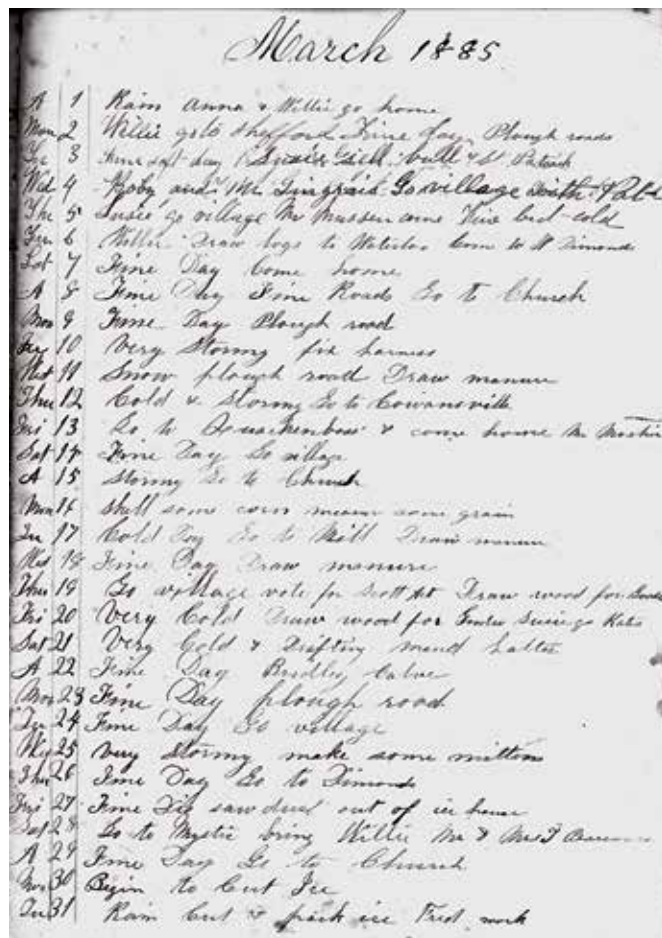 March 1885
A 1 Rain Anna & Willie go home
Mon 2 Willie go to Shefford Fine day Plough roads
Tu 3 Fine soft day Susie Sell bull to St Patrick
Wed 4 Roby and Mr Go village with
Thu 5 Susie go village Mr Mussen came Fine but cold
Fri 6 Willie Draw logs to Waterloo Come to W Dimonds
Sat 7 Fine Day Come home
A 8 Fine Day Fine Roads Go to Church
Mon 9 Fine Day Plough road
Tu 10 Very Stormy fix harness
Wed 11 Snow plough road Draw manure
Thu 12 Cold & Stormy Go to Cowansville
Fri 13 Go to & come home Mr
Sat 14 Fine Day Go village
A 15 Stormy Go to Church
Mon 16 Shell some corn some grain
Tu 17 Cold Day Go to Mill Draw manure
Wed 18 Fine Day Draw manure
Thur 19 Go village vote for Scott Act Draw wood for
Fri 20 Very Cold Draw wood for Susie go
Sat 21 Very Cold & Drifting mend halter
A 22 Fine Day Brindley Calve
Mon 23 Fine Day plough road
Tu 24 Fine Day Go village
Wed 25 Very Stormy make some mittens
Thu 26 Fine Day Go to Dimonds
Fri 27 Fine Dig saw dust out of ice house
Sat 28 Go to Mystic bring Willie Mr & Mrs
A 29 Fine Day Go to Church
Mon 30 Begin to Cut Ice
Tu 31 Rain Cut & pack ice Fred work